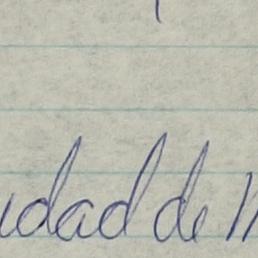 udad de